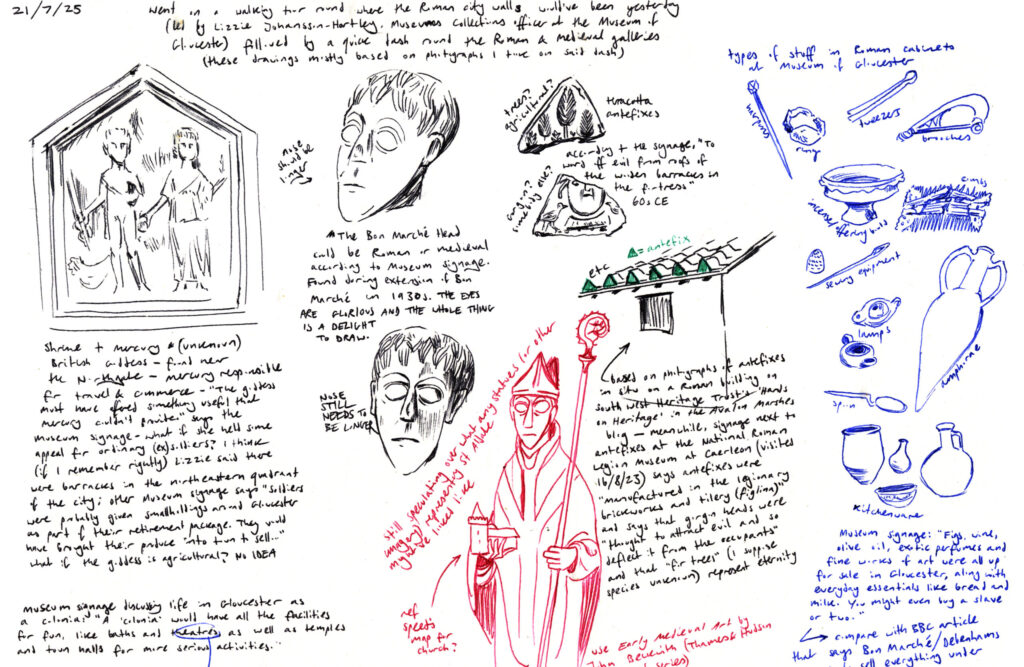 21/7/25
Went on a walking tour round where the Roman city walls would've been yesterday
(led by Lizzie Johansson-Hartley, Museums Collections Officer at the Museum of
Gloucester) followed by a quick dash round the Roman & medieval galleries
(these drawings mostly based on photographs I took on said dash)
nose
should be
longer
trees?
agricultural?
teracotta
antefixes
according to the signage, "To
ward off evil from roofs of
the wooden barracks in
the fortress"
60s CE
gorgon?
somebody else?
▲ = antefix
etc
The Bon Marché Head
could be Roman or medieval
according to Museum signage.
Found during extension of Bon
Marché in 1930s. THE EYES
ARE GLORIOUS AND THE WHOLE THING
IS A DELIGHT
TO DRAW.
NOSE
STILL
NEEDS TO
BE LONGER
Shrine to Mercury & (unknown)
British Goddess – found near
the Northgate – Mercury responsible
for travel & commerce – "The goddess
must have offered something useful that
Mercury couldn't provide." says the
museum signage – what if she held some
appeal for ordinary (ex)soldiers? I think
(if I remember rightly) Lizzie said there
were barracks in the northeastern quadrant
of the city; other Museum signage says "Soldiers
were probably given smallholdings around Gloucester
as part of their retirement package. They would
have brought their produce into town to sell..."
what if the goddess is agricultural? NO IDEA
museum signage discussing life in Gloucester as
a colonia: "A 'colonia' would have all the facilities
for fun, like baths and theatres as well as temples
and town halls for more serious activities."
still speculating over what any statues (or other
imagery) representing St Aldate
might've looked like
ref
speeds
map for
church?
use Early Medieval Art by
John Beckwith (Thames & Hudson
series)
based on photographs of antefixes
in situ on a Roman building on
South West Heritage Trust's 'Hands
on Heritage' in the Avalon Marshes
blog – meanwhile, signage next to
antefixes at the National Roman
Legion Museum at Caerleon (visited
16/8/23) says antefixes were
"manufactured in the legionary
brickworks and tilery (figlina)"
and says that gorgon heads were
"thought to attract evil and so
deflect it from the occupants"
and that "fir trees" (I suppose
species unknown) represent eternity
types of stuff in Roman cabinets
at Museum of Gloucester
hairpins
ring
tweezers
brooches
incense/offering bowl
combs
sewing equipment
lamps
amphorae
spoon
Kitchenware
Museum signage: "Figs, wine,
olive oil, exotic perfumes and
fine works of art were all up
for sale in Gloucester, along with
everyday essentials like bread and
milk. You might even buy a slave
or two."
compare with BBC article
that says Bon Marché/Debenhams
sell everything under